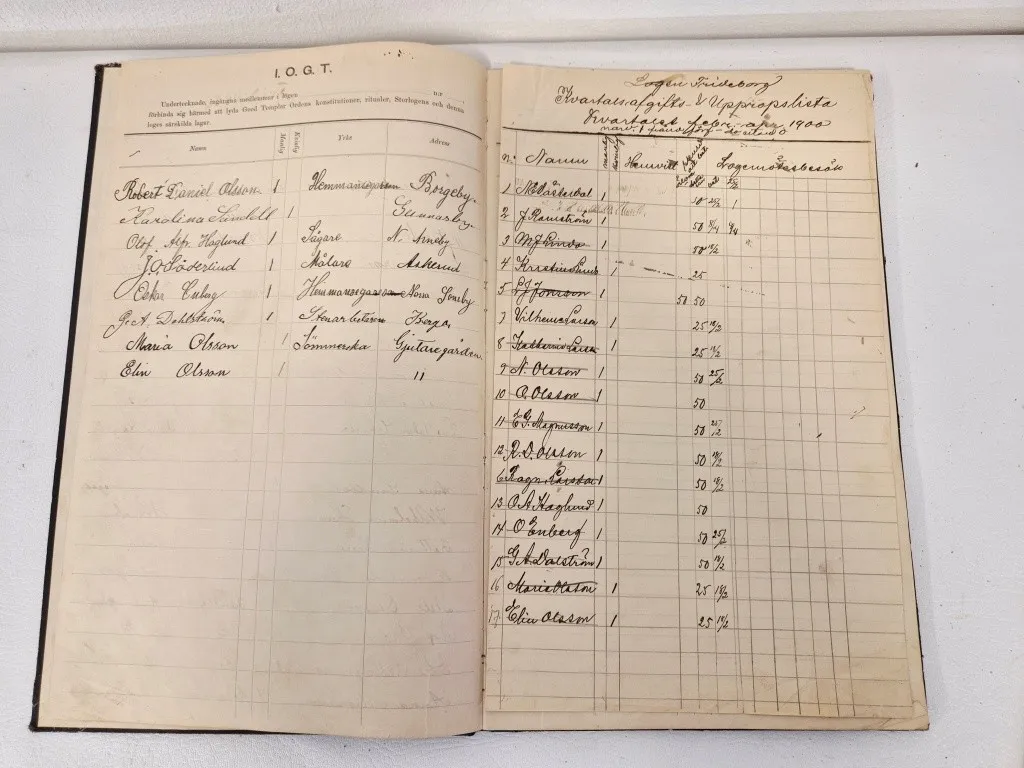 I.O.G.T.
Undertecknade, ingångna medlemmar i logen n:r
förbinda sig härmed att lyda Good Templar Ordens konstitutioner, ritualer, Storlogens och denna
loges särskilda lagar.
Namn Manlig Kvinlig Yrke Adress
Robert Daniel Olsson 1 Hemmansegaresn Börgeby.
Karolina Sundell 1 Gunnarsby.
Olof. Alf. Haglund 1 Sågare N. Arneby
J. O. Söderlind 1 Målare Askerud
Oskar Enberg 1 Norra Loneby
G. A. Dehlström 1 Stenarbetaren Berga.
Maria Olsson 1 Sömmerska Gjutaregården.
Elin Olsson 1 "
Logen Frideborg
Kvartalsafgifts- & Uppropslista
Kvartalet febr. 1900
Namn manlig Hemvist Logemötesbesök
1 1
2 J. Ramström 1 50
3 1 50 18/2
4 Kristina 1 25
5 J. Jonsson 1 50 50
7 Vilhelm Larson 1 25 18/2
8 1 25 18/2
9 N. Olsson 1 50 25/2
10 O. Olsson 1 50
11 E. G. Magnusson 1 50 25/2
12 R. D. Olsson 1 50 18/2
6 Ragn. 1 50 18/2
13 O A Haglund 1 50
14 O Enberg 1 50 25/2
15 G. A. Dalström 1 50 18/2
16 Maria Olsson 1 25 18/2
17 Elin Olsson 1 25 18/2